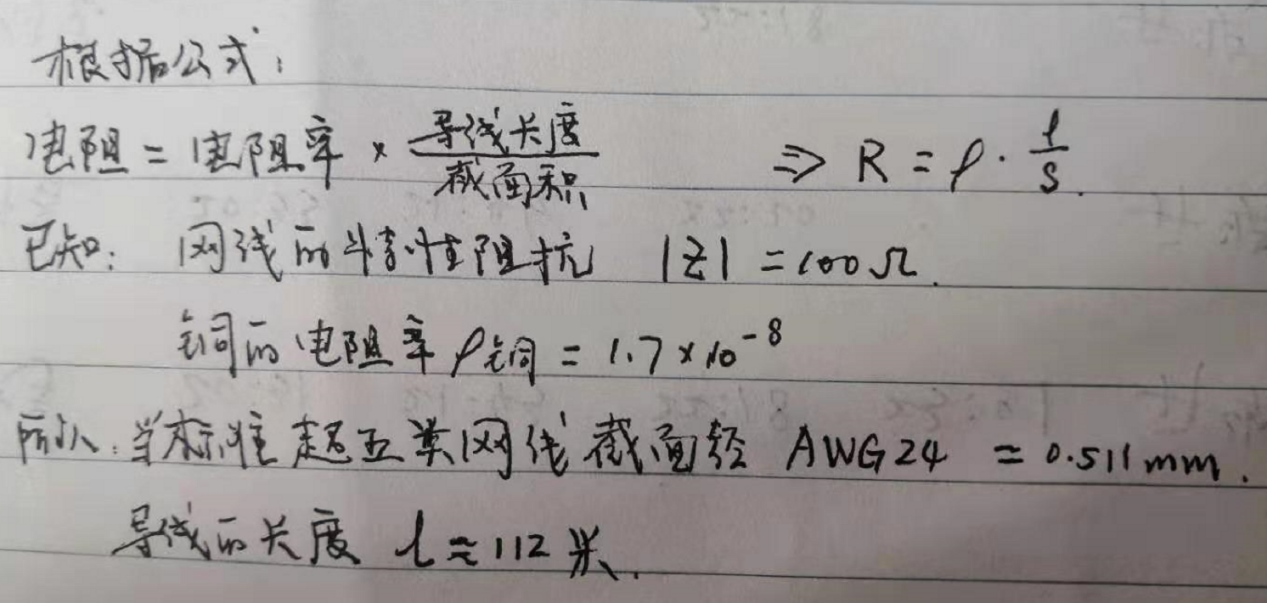 根据公式:
电阻 = 电阻率 × 导线长度/截面积 ⇒ R = ρ · l/S.
已知: 网线的特性阻抗 |Z| = 100Ω.
铜的电阻率 ρ铜 = 1.7×10⁻⁸
所以: 当标准超五类网线截面径 AWG24 = 0.511mm.
导线的长度 l ≈ 112 米.